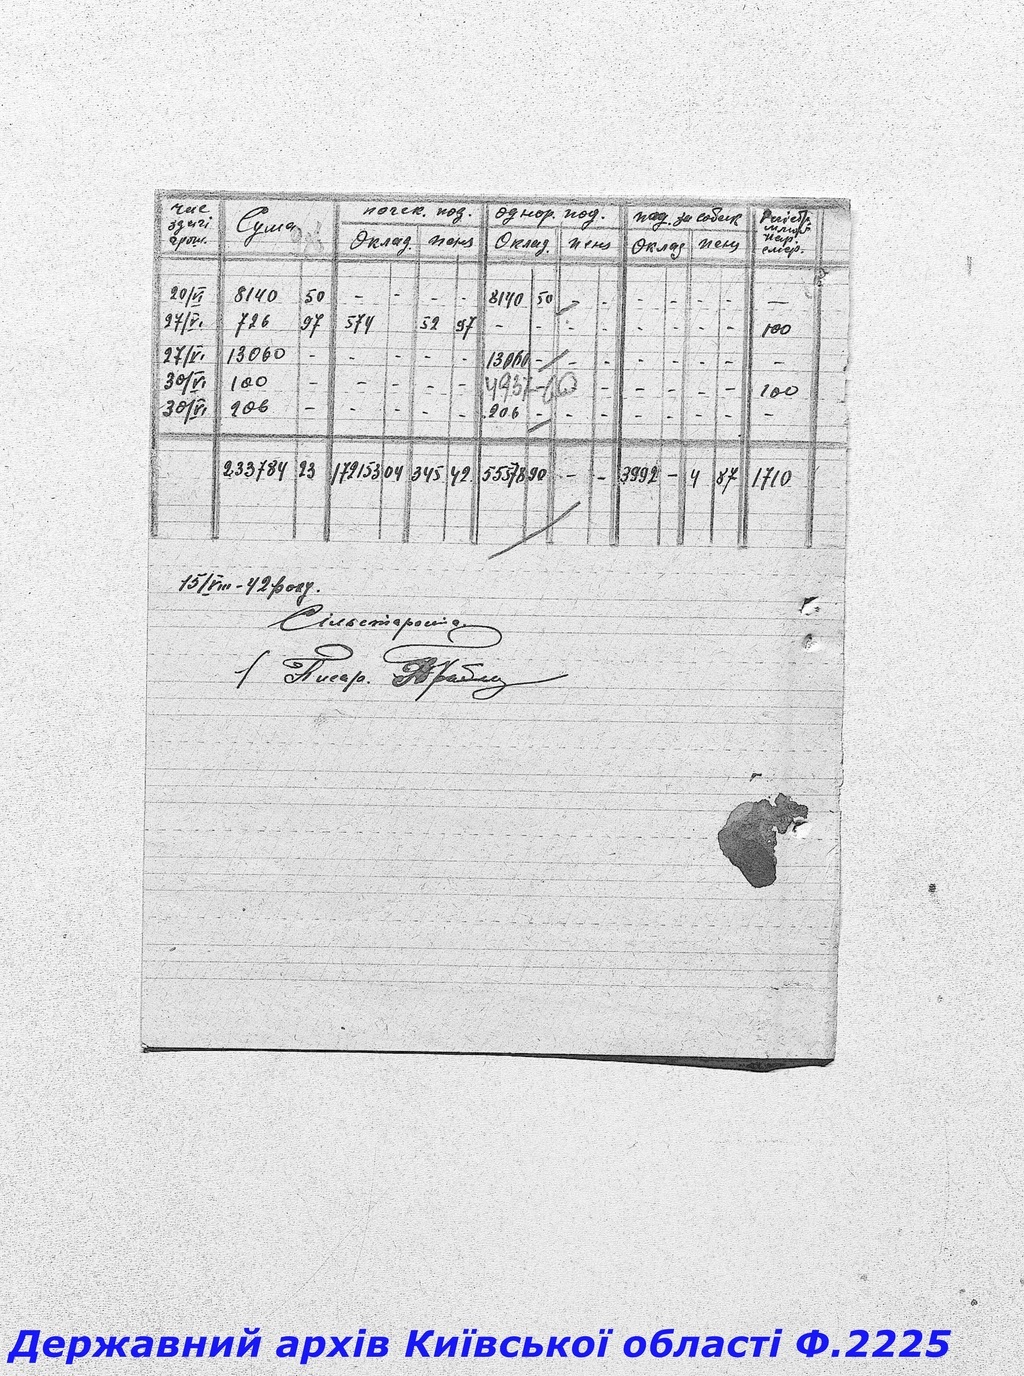 час здачі грош. Сума почек. под. однор. под. под. за собак
Оклад. пеня Оклад. пеня Оклад пеня
20/VI 8140 50 - - - - 8140 50 - - - - - - —
27/VI 726 97 574 52 97 - - - - - - - - 100
27/VI 13060 - - - - - 13060 - - - - - - -
30/VI 100 - - - - - 4937-60 - - - - - 100
30/VI 206 - - - - - 206 - - - - - - -
233784 23 172153 04 345 42 55578 90 - - 3992 - 4 87 1710
15/VIII-42 року.
Сільстароста
Писар.
Державний архів Київської області Ф.2225